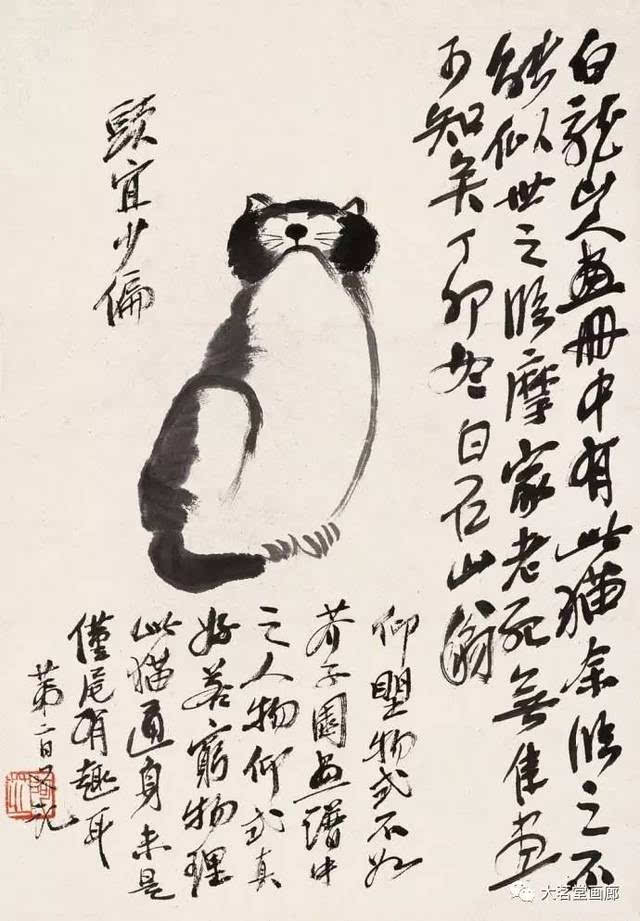 白龍山人畫冊中有此猫余臨之不
能似世之臨摩家老死無佳畫
可知矣丁卯冬白石山翁
頭宜少偏
仰望物式不如
芥子園畫譜中
之人物仰式真
好若窮物理
此猫通身未是
僅尾有趣耳
第二日又記
大茗堂画廊